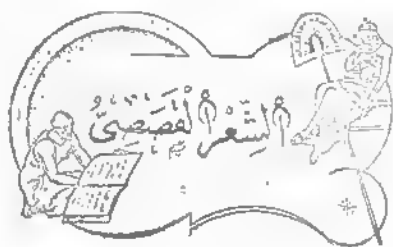 اَلشِّعْرُ اَلْقَصَصِيُّ